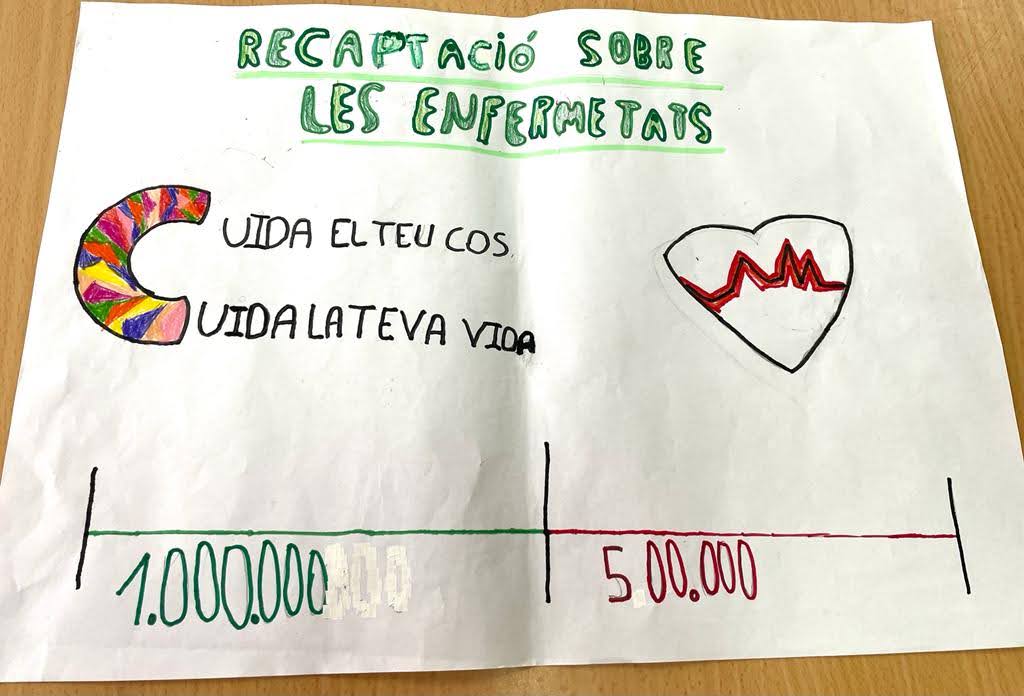 RECAPTACIÓ SOBRE
LES ENFERMETATS
CUIDA EL TEU COS
CUIDA LA TEVA VIDA
1.000.000
5.00.000